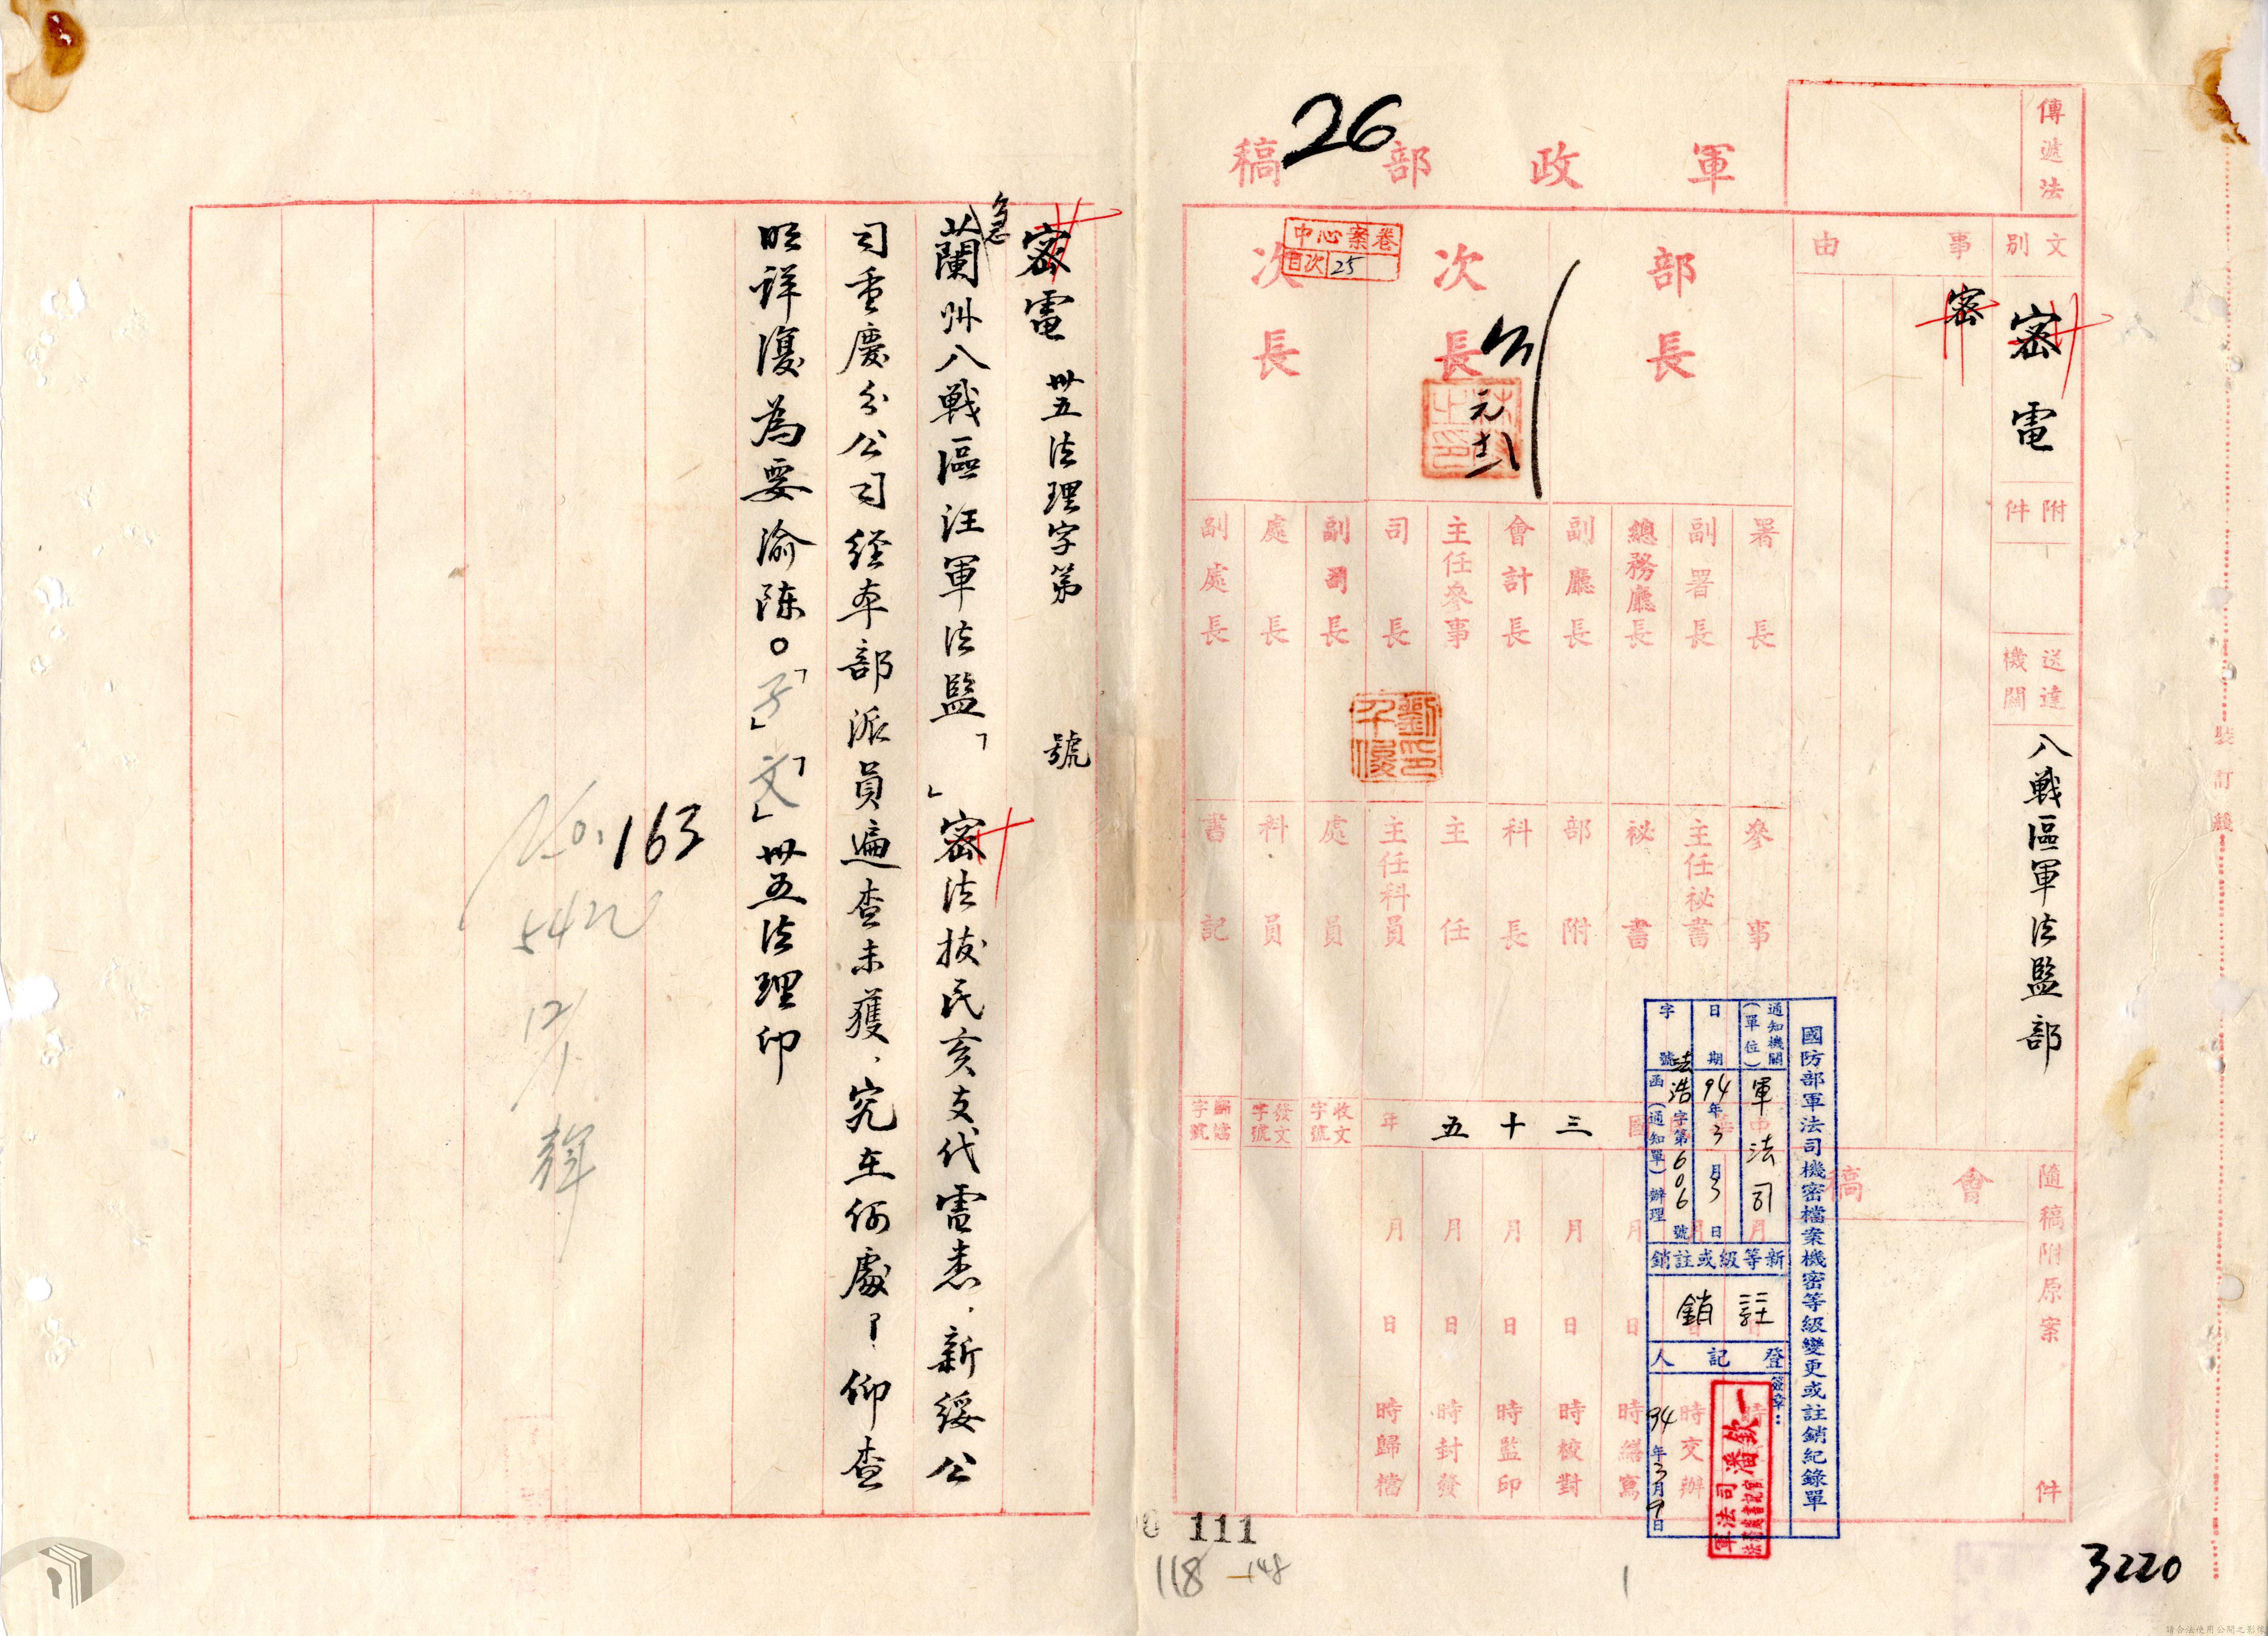 26
軍政部稿
傳遞法
文別
密電
附件
送達機關
八戰區軍法監部
事由
密
會稿
隨稿附原案
件
部長
次長
次長
中心案卷
目次 25
元
署長
副署長
總務廳長
副廳長
會計長
主任參事
司長
副司長
處長
副處長
劉印千俊
參事
主任祕書
祕書
部附
科長
主任
主任科員
處員
科員
書記
三十五年
收文字號
發文字號
歸檔字號
月日時交辦
月日時繕寫
月日時校對
月日時監印
月日時封發
月日時歸檔
國防部軍法司機密檔案機密等級變更或註銷紀錄單
通知機關(單位) 軍法司
日期 94年3月3日
字號 法浩字第606號函(通知單)辦理
新等級或註銷
註銷
登記人
簽章:
94年3月9日
軍法司
潘欽一
裝訂線
3220
密電 卅五法理字第 號
急
蘭州八戰區汪軍法監「」密法拔民亥支代電悉.新綏公
司重慶分公司經本部派員遍查未獲.究在何處?仰查
明詳復為要渝陳○「子」「文」卅五法理印
No. 163
12/1
111
118 -148
請合法使用公開之影像